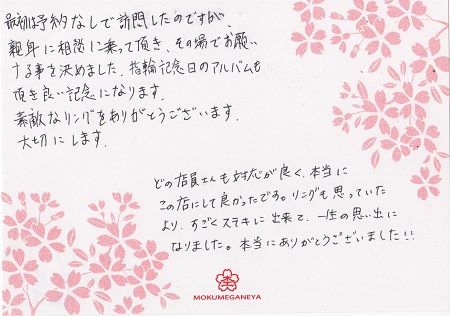 最初は予約なしで訪問したのですが、
親身に相談に乗って頂き、その場でお願い
する事を決めました。指輪記念日のアルバムも
頂き良い記念になります。
素敵なリングをありがとうございます。
大切にします。
どの店員さんも対応が良く、本当に
この店にして良かったです。リングも思っていた
より、すごくステキに出来て、一生の思い出に
なりました。本当にありがとうございました!!
MOKUMEGANEYA